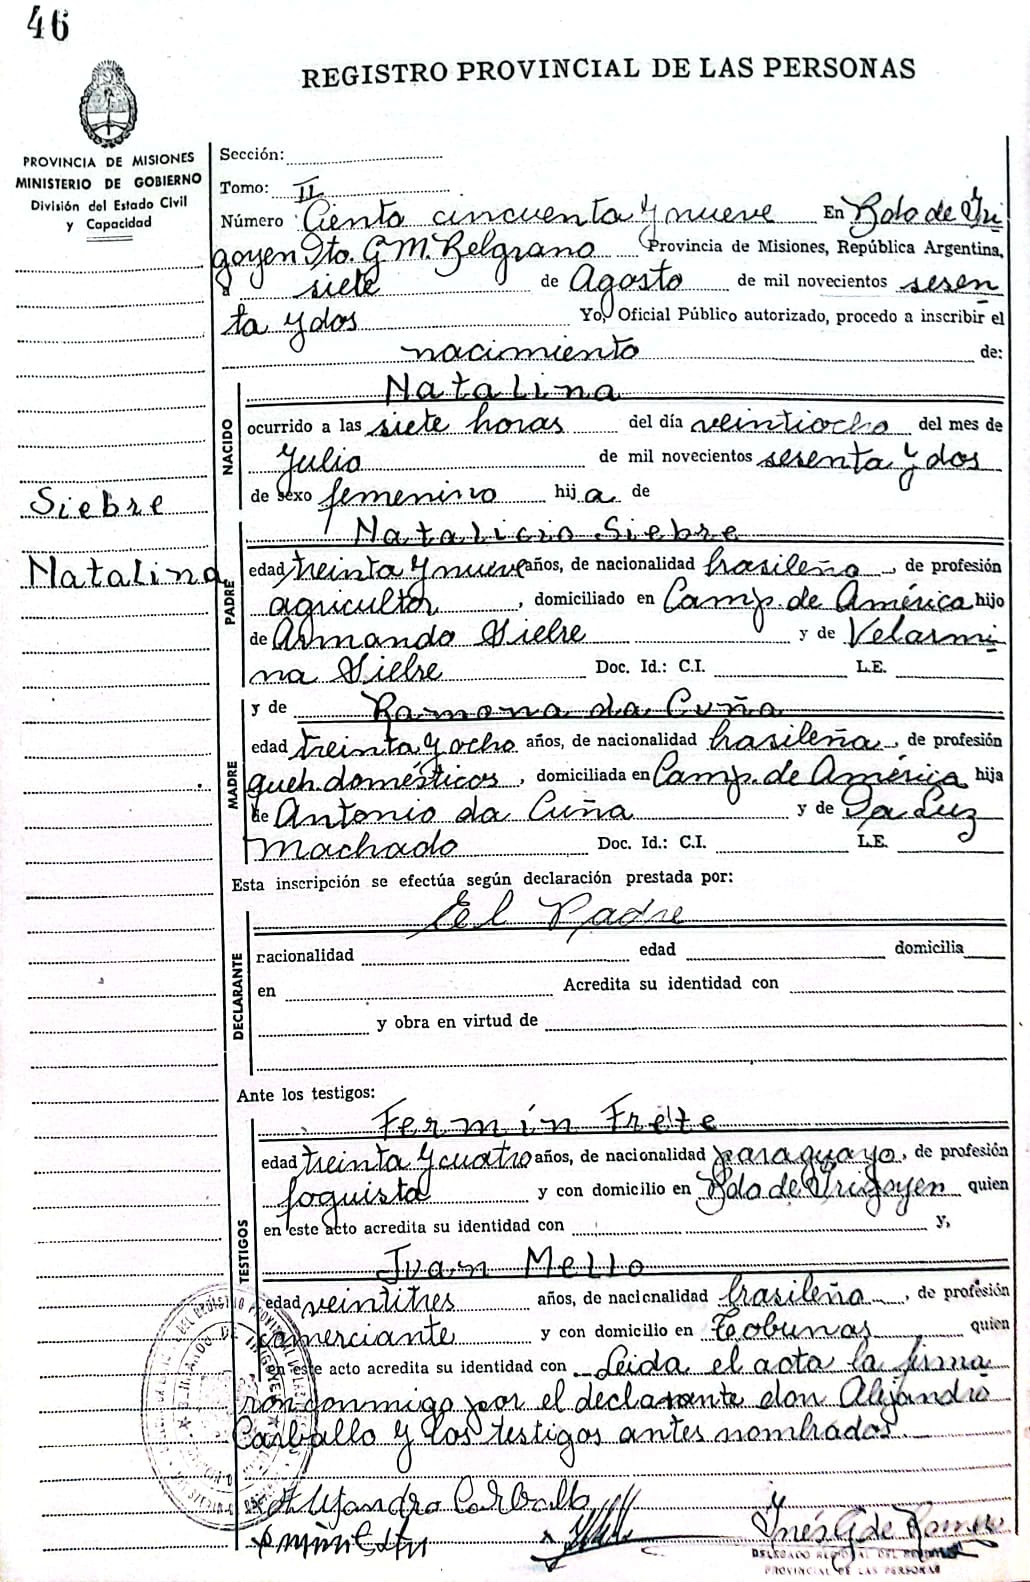 46
REGISTRO PROVINCIAL DE LAS PERSONAS
PROVINCIA DE MISIONES
MINISTERIO DE GOBIERNO
División del Estado Civil
y Capacidad
Siebre
Natalina
Sección:
Tomo: II
Número Ciento cincuenta y nueve En Bdo de Iri
goyen Dto. G. M. Belgrano Provincia de Misiones, República Argentina,
a siete de Agosto de mil novecientos sesen
ta y dos Yo, Oficial Público autorizado, procedo a inscribir el
nacimiento de:
NACIDO
Natalina
ocurrido a las siete horas del día veintiocho del mes de
Julio de mil novecientos sesenta y dos
de sexo femenino hija de
PADRE
Natalicio Siebre
edad treinta y nueve años, de nacionalidad brasileña, de profesión
agricultor, domiciliado en Camp. de América hijo
de Armando Siebre y de Velarmi
na Siebre Doc. Id.: C.I. L.E.
MADRE
y de Ramona da Cuña
edad treinta y ocho años, de nacionalidad brasileña, de profesión
queh. domésticos, domiciliada en Camp. de América hija
de Antonio da Cuña y de Da Luz
Machado Doc. Id.: C.I. L.E.
Esta inscripción se efectúa según declaración prestada por:
DECLARANTE
El Padre
racionalidad edad domicilia
en Acredita su identidad con
y obra en virtud de
Ante los testigos:
TESTIGOS
Fermín Frete
edad treinta y cuatro años, de nacionalidad paraguayo, de profesión
foguista y con domicilio en Bdo de Irigoyen quien
en este acto acredita su identidad con y,
Juan Mello
edad veintitres años, de nacionalidad brasileña, de profesión
comerciante y con domicilio en Tobunas quien
en este acto acredita su identidad con Leida el acta la firma
ron conmigo por el declarante don Alejandro
Carballo y los testigos antes nombrados.
Alejandro Carballo
Inés G de Romero
DELEGADO REGIONAL DEL REGISTRO
PROVINCIAL DE LAS PERSONAS